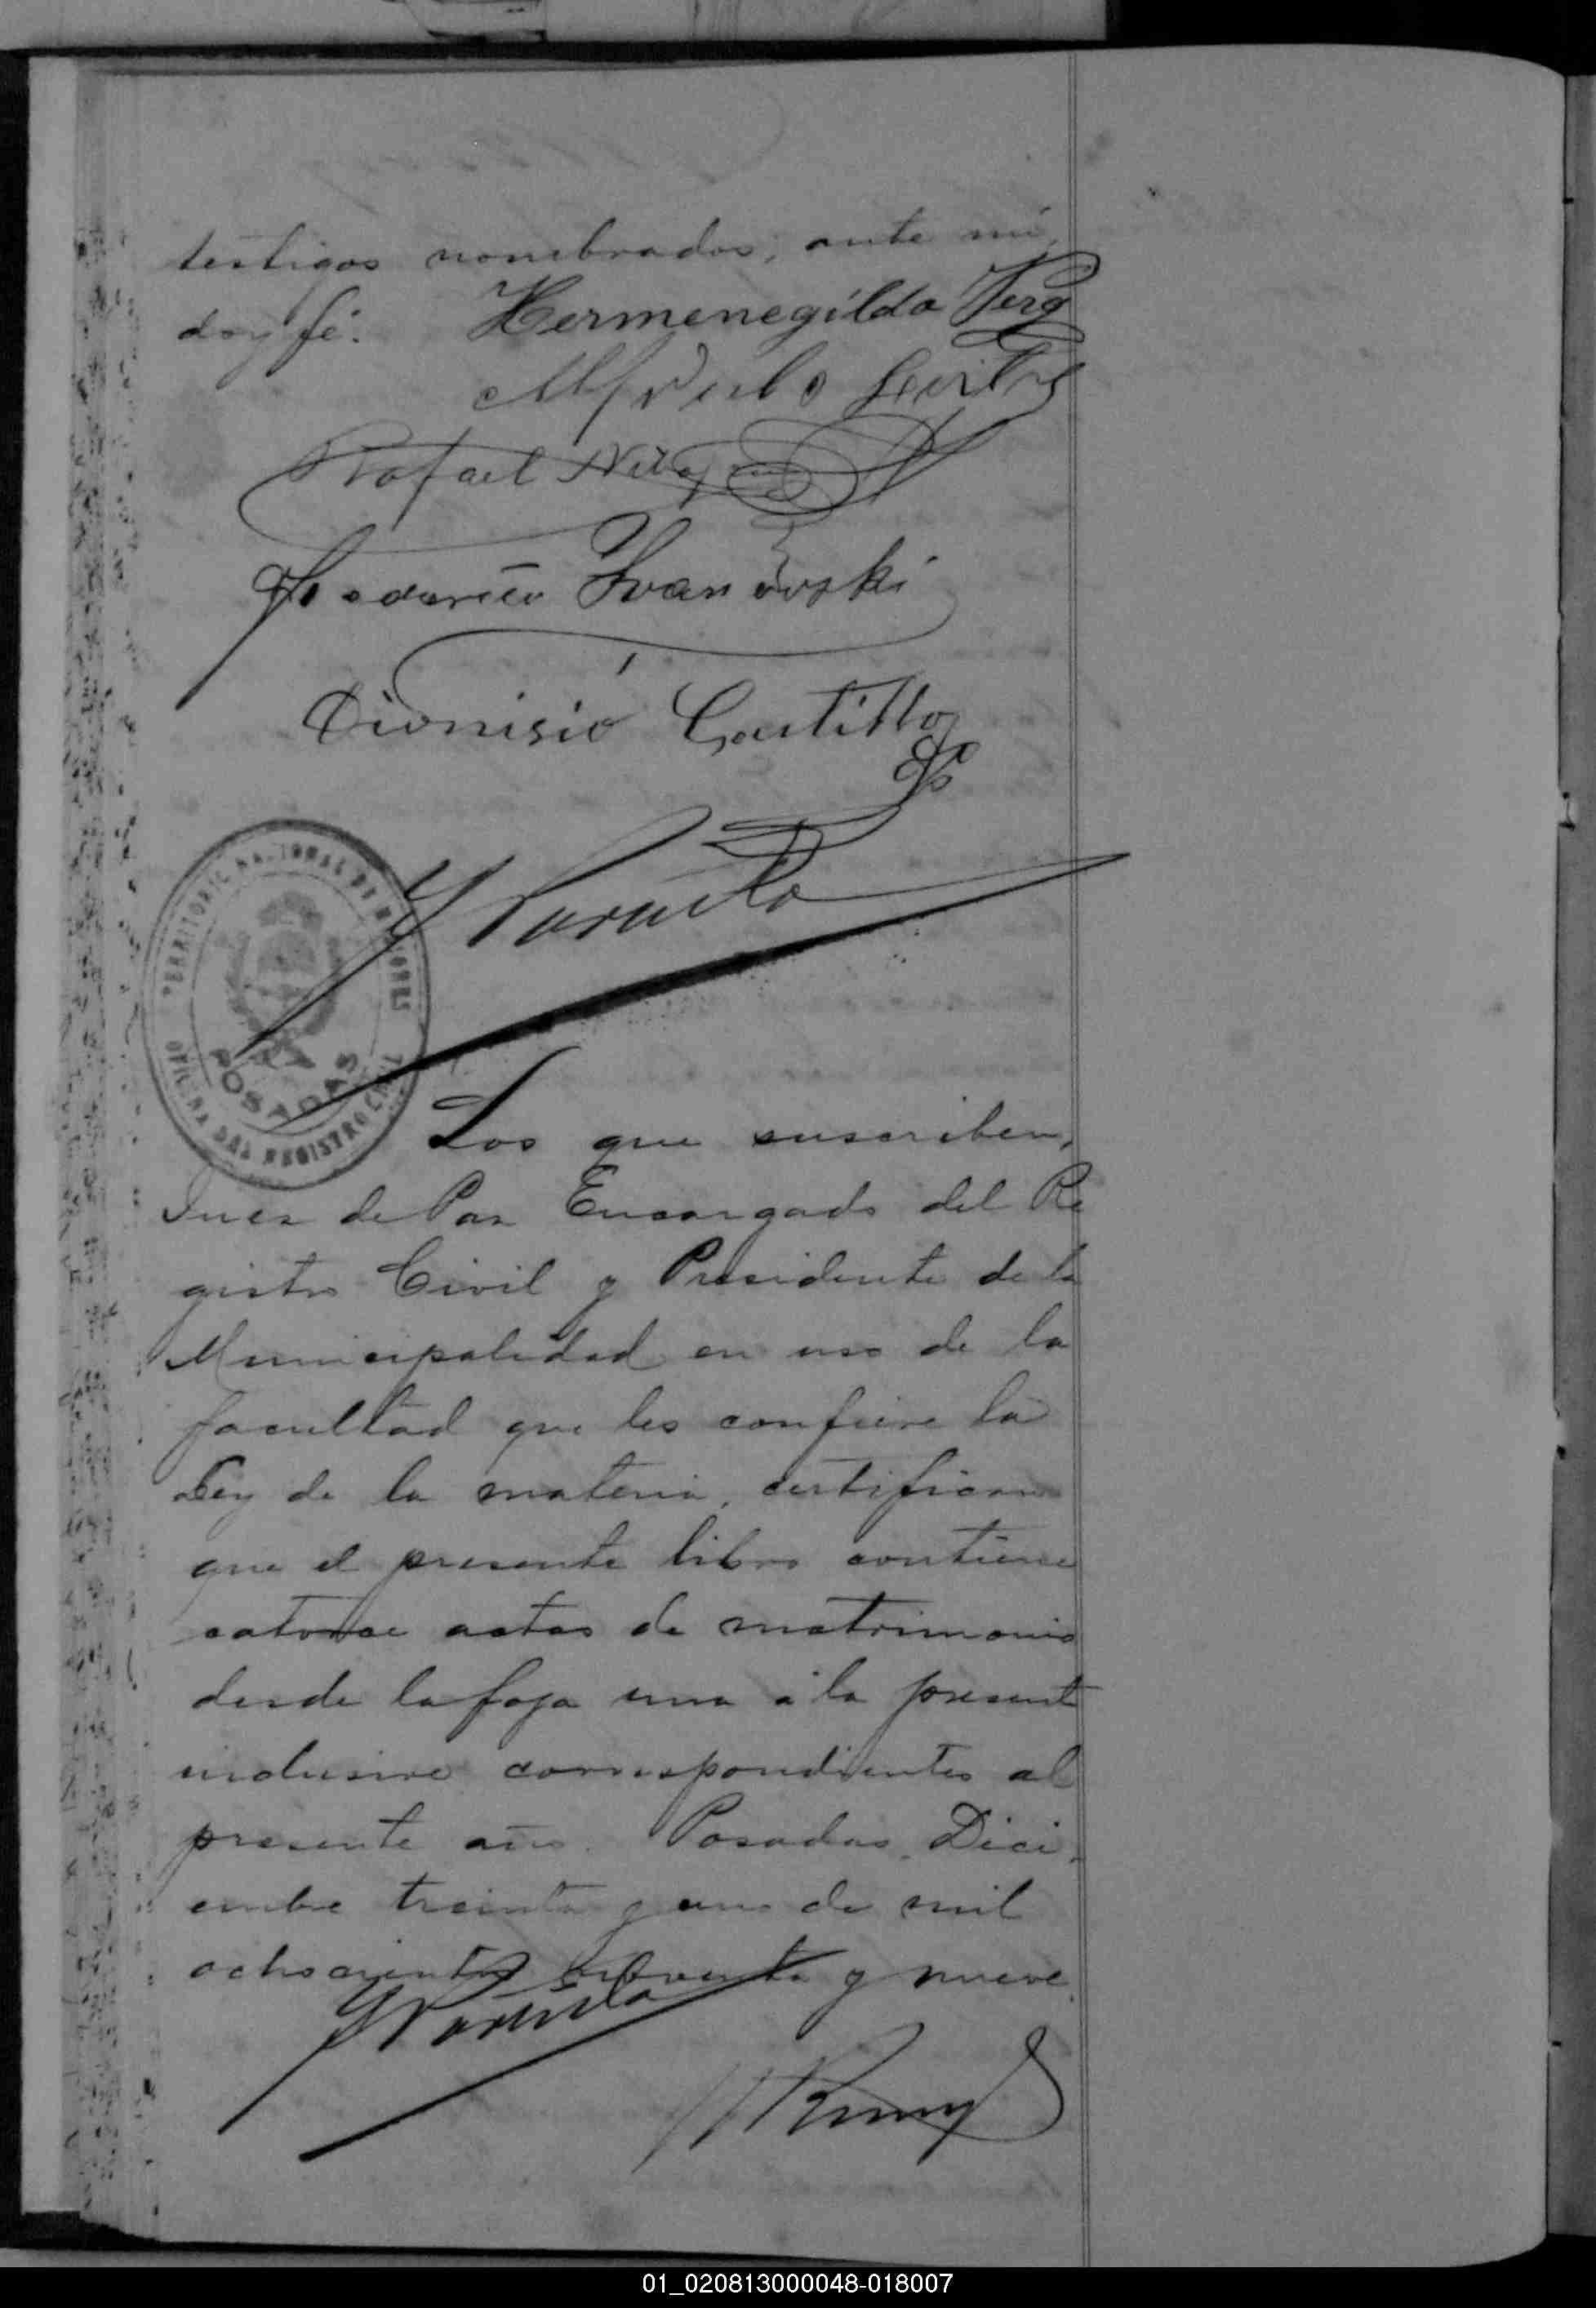 testigos nombrados, ante mí,
doy fé. Hermenegildo
Alfredo
Rafael
Federico Ivanovski
Dionisio Castillo
TERRITORIO NACIONAL DE MISIONES
POSADAS
OFICINA DEL REGISTRO CIVIL
Los que suscriben,
Juez de Paz Encargado del Re
gistro Civil y Presidente de la
Municipalidad en uso de la
facultad que les confiere la
Ley de la materia, certifican
que el presente libro contiene
catorce actas de matrimonio
desde la foja una á la present
inclusive correspondientes al
presente año. Posadas, Dici
embre treinta y uno de mil
ochocientos noventa y nueve.
01_020813000048-018007